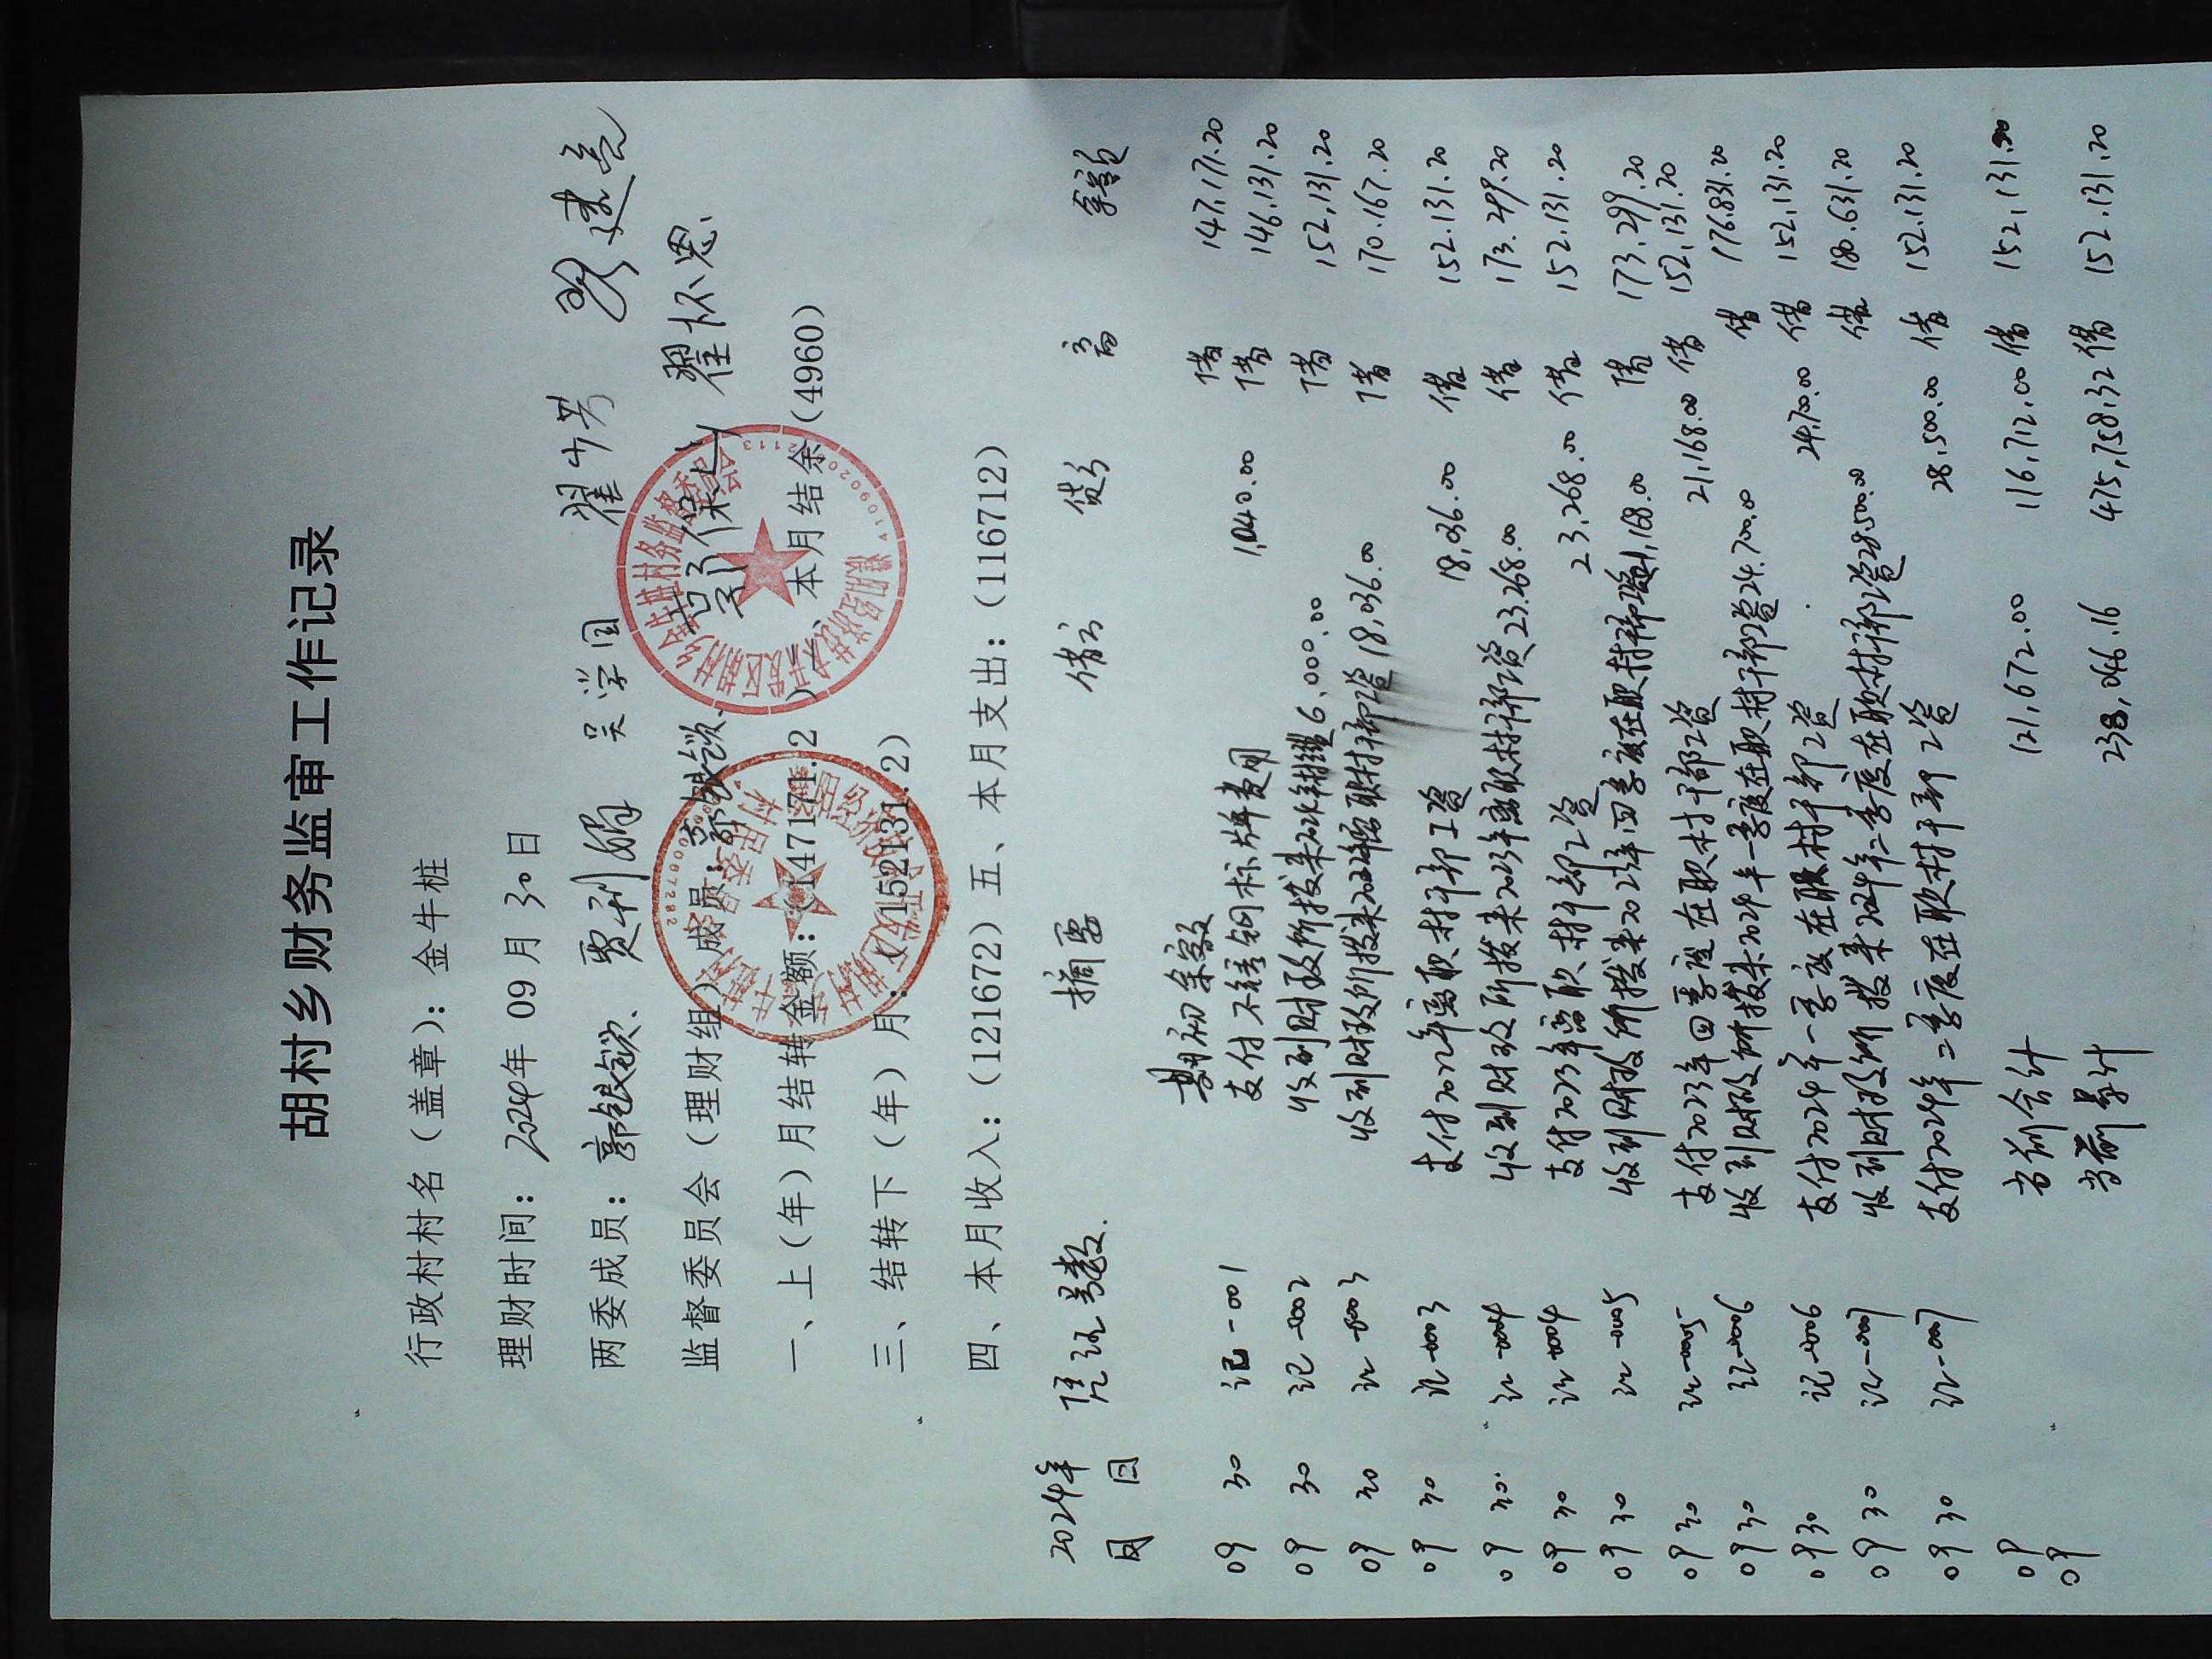 胡村乡财务监审工作记录
行政村村名（盖章）：金牛桩
理财时间：2024年 09 月 30 日
两委成员：郭银锁、贾利娟 吴学国 翟少芳
监督委员会（理财组）成员：郭银锁、 翟怀恩
一、上（年）月结转金额：（147171.2）二、本月结余（4960）
三、结转下（年）月：（152131.2）
四、本月收入：（121672）五、本月支出：（116712）
2024年 凭证号数 摘要 借方 贷方 方 余额
月 日
期初余额 借 147,171.20
09 30 记-001 支付不锈钢标牌费用 1,040.00 借 146,131.20
09 30 记-0002 收到财政所拨来 6,000.00 借 152,131.20
09 30 记-0003 收到财政所拨来2022年离职村干部工资 18,036.00 借 170,167.20
09 30 记-0003 支付2022年离职村干部工资 18,036.00 借 152,131.20
09 30 记-0004 收到财政所拨来2023年离职村干部工资 23,268.00 借 173,299.20
09 30 记-0004 支付2023年离职村干部工资 23,268.00 借 152,131.20
09 30 记-0005 收到财政所拨来2023年四季度在职村干部工资 21,168.00 借 173,299.20
09 30 记-0005 支付2023年四季度在职村干部工资 21,168.00 借 152,131.20
09 30 记-0006 收到财政所拨来2024年一季度在职村干部工资 24,700.00 借 176,831.20
09 30 记-0006 支付2024年一季度在职村干部工资 24,700.00 借 152,131.20
09 30 记-0007 收到财政所拨来2024年二季度在职村干部工资 28,500.00 借 180,631.20
09 30 记-0007 支付2024年二季度在职村干部工资 28,500.00 借 152,131.20
09 当前合计 121,672.00 116,712.00 借 152,131.20
09 当前累计 238,046.16 475,758.32 借 152,131.20